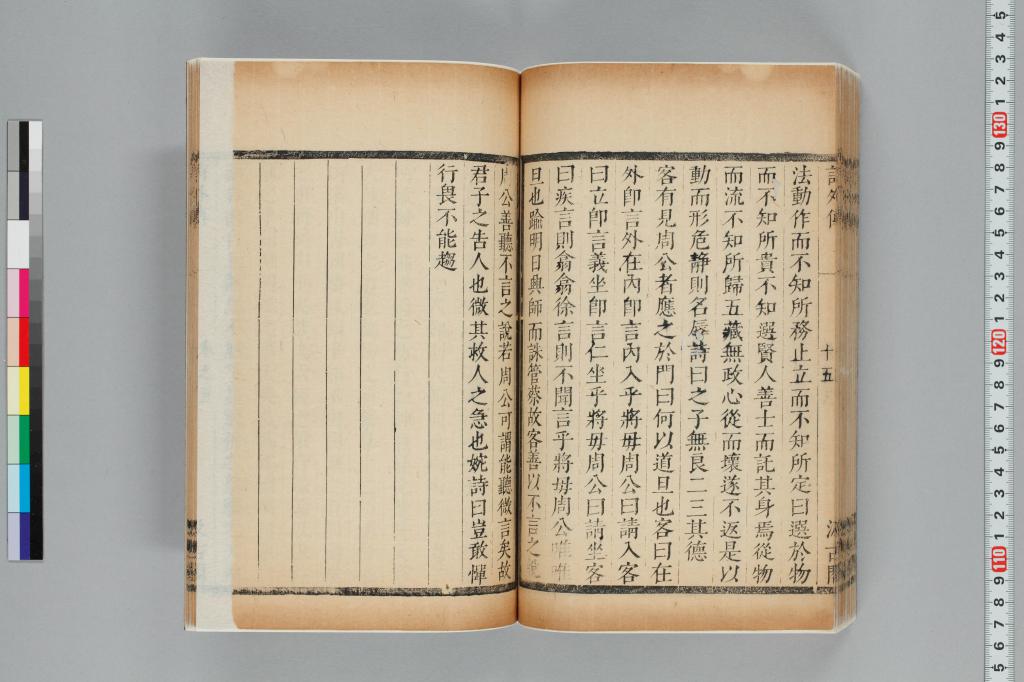 詩外傳
十五
汲古閣
法動作而不知所務止立而不知所定曰選於物
而不知所貴不知選賢人善士而託其身焉從物
而流不知所歸五藏無政心從而壞遂不返是以
動而形危靜則名辱詩曰之子無良二三其德
客有見周公者應之於門曰何以道旦也客曰在
外卽言外在內卽言內入乎將毋周公曰請入客
曰立卽言義坐卽言仁坐乎將毋周公曰請坐客
曰疾言則翕翕徐言則不聞言乎將毋周公唯唯
旦也踰明日興師而誅管蔡故客善以不言之說
周公善聽不言之說若周公可謂能聽微言矣故
君子之告人也微其救人之急也婉詩曰豈敢憚
行畏不能趨
5 4 3 2 1 130 9 8 7 6 5 4 3 2 1 120 9 8 7 6 5 4 3 2 1 110 9 8 7 6 5